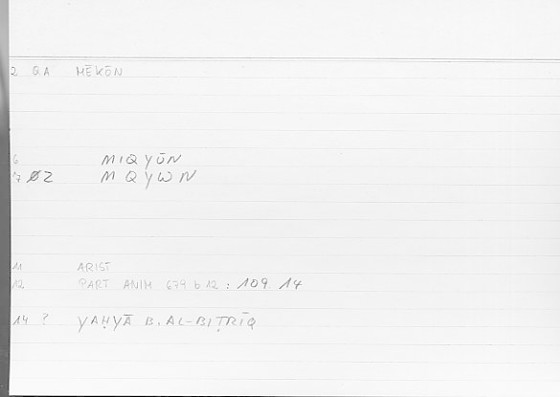 2 QA MĒKŌN
6 MIQYŪN
7 02 MQYWN
11 ARIST
12 PART ANIM 679 b 12 : 109. 14
14 ? YAḤYĀ B. AL-BIṬRĪQ